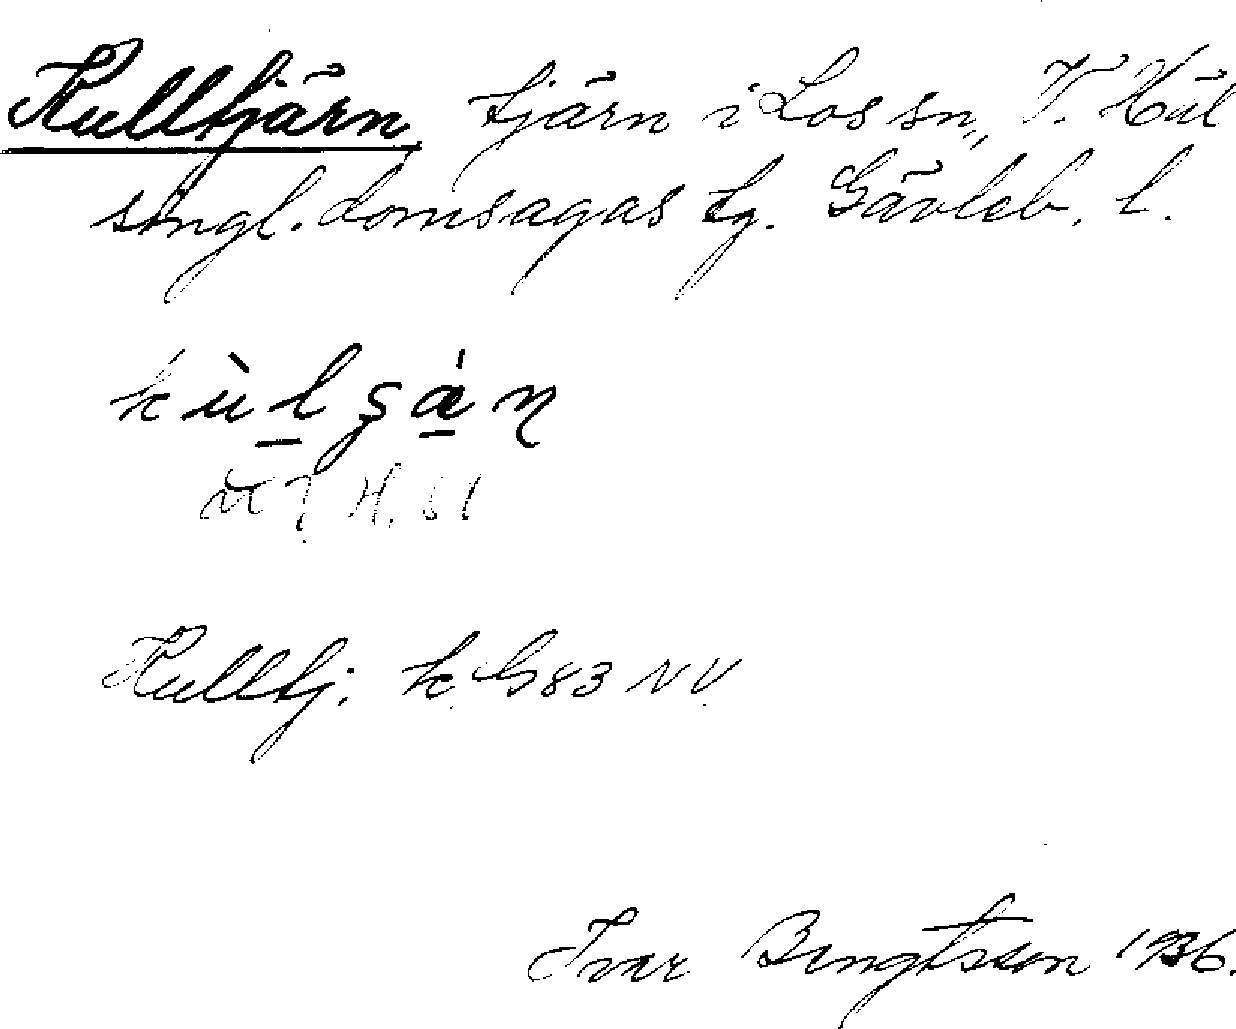 Kulltjärn tjärn i Los sn, V. Häl
singl. domsagas tg. Gävleb. l.
kùlşán
Kulltj. k. G 83 NV
Ivar Bengtsson 1936.